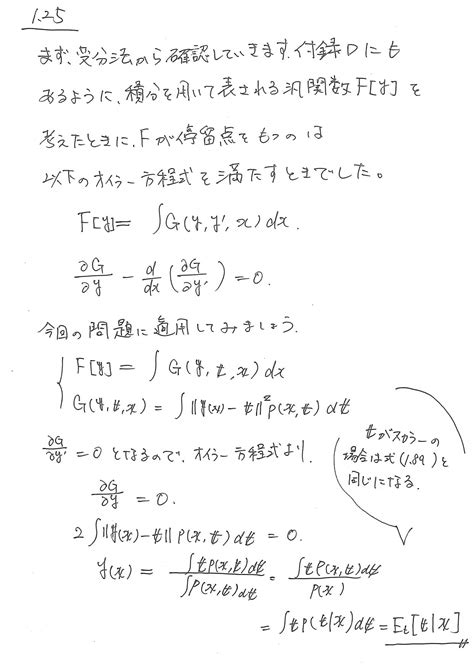 1.25
まず、変分法から確認していきます。付録Dにも
あるように、積分を用いて表される汎関数F[y]を
考えたときに、Fが停留点をもつのは
以下のオイラー方程式を満たすときでした。
F[y] = ∫G(y, y', x)dx.
∂G/∂y − d/dx(∂G/∂y') = 0.
今回の問題に適用してみましょう。
F[y] = ∫G(y, t, x)dx
G(y, t, x) = ∫‖y(x) − t‖²p(x, t)dt
∂G/∂y' = 0 となるので、オイラー方程式より、
tがスカラーの
場合は式(1.89)と
同じになる.
∂G/∂y = 0.
2∫‖y(x) − t‖p(x, t)dt = 0.
y(x) = ∫tp(x,t)dt/∫p(x,t)dt = ∫tp(x,t)dt/p(x)
= ∫tp(t|x)dt = Et[t|x]